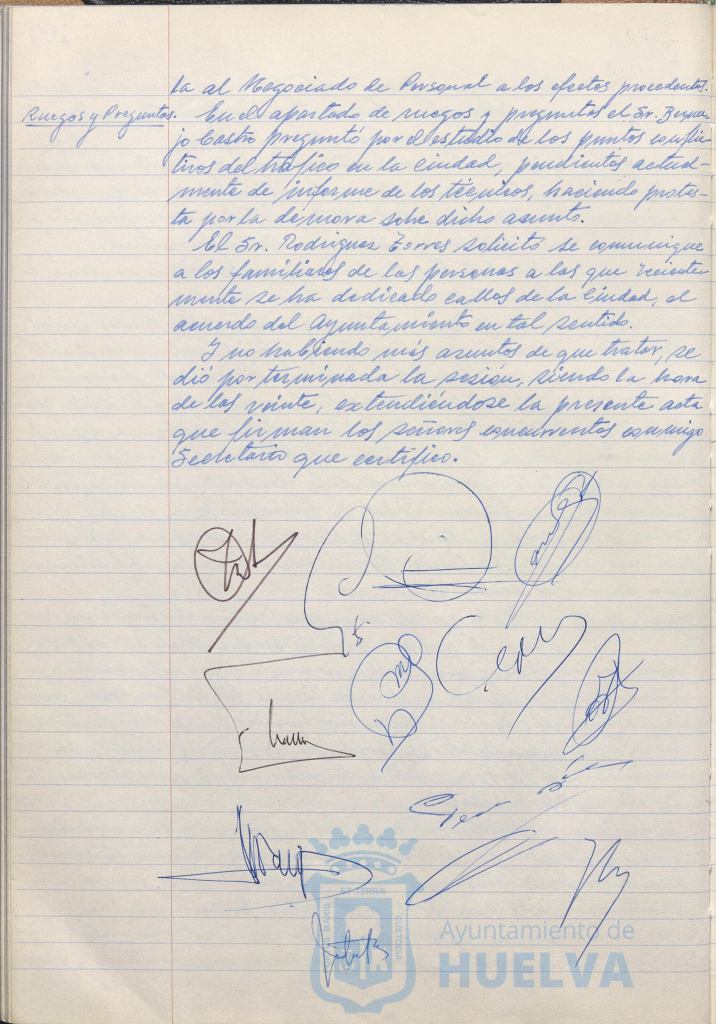 ta al Negociado de Personal a los efectos procedentes.
Ruegos y Preguntas. En el apartado de ruegos y preguntas el Sr. Berme-
jo Castro preguntó por el estudio de los puntos conflic-
tivos del tráfico en la ciudad, pendientes actual-
mente de informe de los técnicos, haciendo protes-
ta por la demora sobre dicho asunto.
El Sr. Rodríguez Torres solicitó se comunique
a los familiares de las personas a las que reciente-
mente se ha dedicado calles de la Ciudad, el
acuerdo del Ayuntamiento en tal sentido.
Y no habiendo más asuntos de que tratar, se
dió por terminada la sesión, siendo la hora
de las veinte, extendiéndose la presente acta
que firman los señores concurrentes conmigo
Secretario que certifico.
Ayuntamiento de
HUELVA